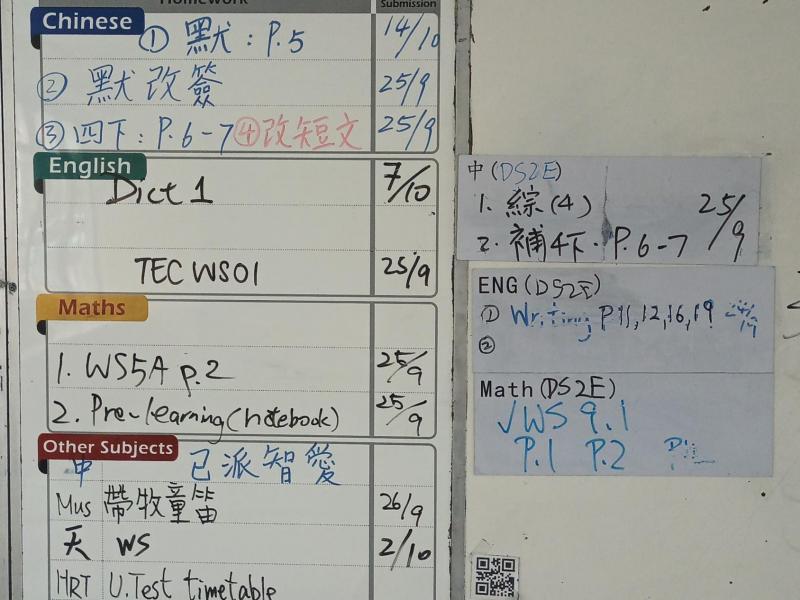 Homework Submission
Chinese
① 默: P.5 14/10
② 默改簽 25/9
③ 四下: P.6-7 ④改短文 25/9
English
Dict 1 7/10
TEC WS01 25/9
Maths
1. WS5A p.2 25/9
2. Pre-learning (notebook) 25/9
Other Subjects
中 已派智愛
Mus 帶牧童笛 26/9
天 WS 2/10
HRT U.Test timetable
中 (DS2E)
1. 綜(4) 25/9
2. 補4下. P.6-7
ENG (DS2E)
① Writing P.11,12,16,19
②
Math (DS2E)
√WS 9.1
P.1 P.2